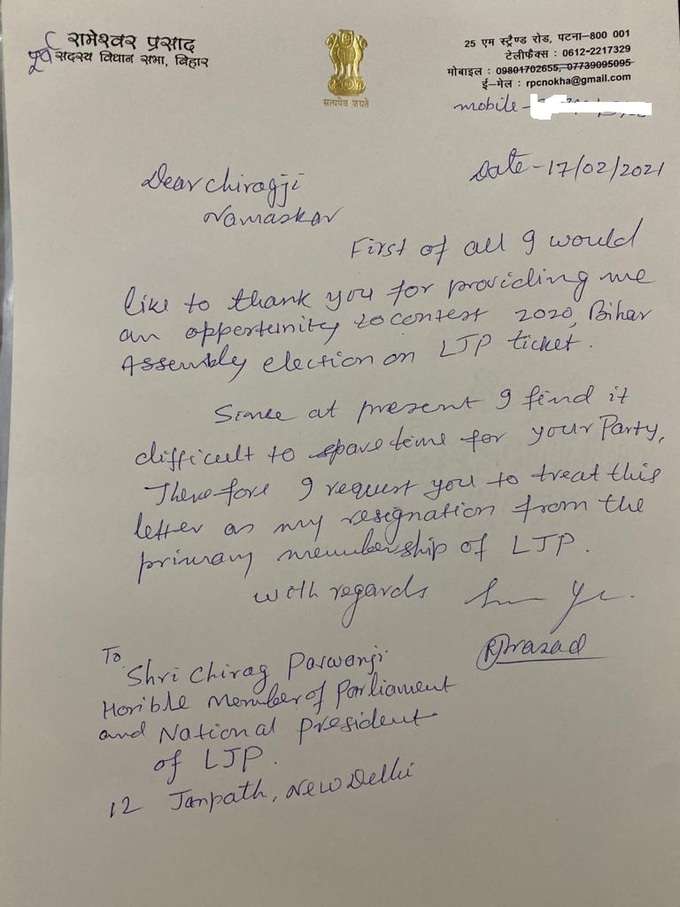 रामेश्वर प्रसाद
पूर्व सदस्य विधान सभा, बिहार
सत्यमेव जयते
25 एम स्ट्रैण्ड रोड, पटना-800 001
टेलीफैक्स : 0612-2217329
मोबाइल : 09801702655, 07739095095
ई-मेल : rpcnokha@gmail.com
mobile-
Date-17/02/2021
Dear Chiragji
Namaskar
First of all I would
like to thank you for providing me
an oppertunity to contest 2020, Bihar
Assembly election on LJP ticket.
Since at present I find it
difficult to spare time for your Party,
Therefore I request you to treat this
letter as my resignation from the
primary membership of LJP.
with regards
RPrasad
To
Shri Chirag Paswanji
Hon'ble Member of Parliament
and National president
of LJP.
12 Janpath, New Delhi